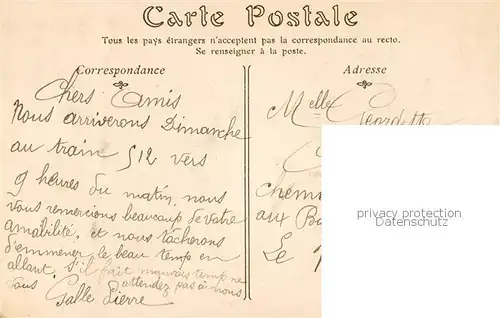 Carte Postale
Tous les pays étrangers n'acceptent pas la correspondance au recto.
Se renseigner à la poste.
Correspondance
Chers Amis
Nous arriverons Dimanche
au train 512 vers
9 heures du matin, nous
vous remercions beaucoup de votre
amabilité, et nous tâcherons
d'emmener le beau temps en
allant, s'il fait mauvais temps ne
vous attendez pas à nous
Galle Pierre
Adresse
Melle Georgette
C
chem
aux Ba
Le
privacy protection
Datenschutz